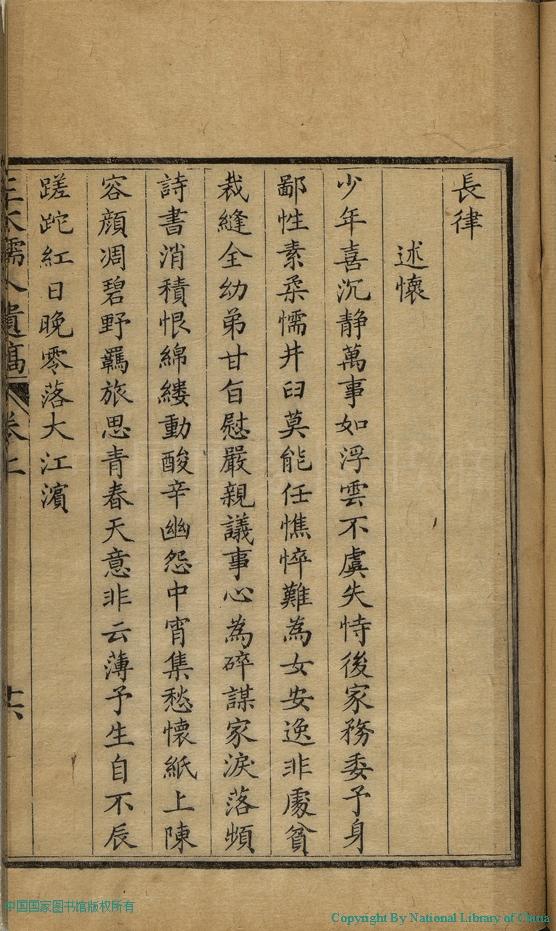 長律
述懷
少年喜沉静萬事如浮雲不虞失恃後家務委予身
鄙性素柔懦井臼莫能任憔悴難為女安逸非處貧
裁縫全幼弟甘旨慰嚴親議事心為碎謀家淚落頻
詩書消積恨綿縷動酸辛幽怨中宵集愁懷紙上陳
容顔凋碧野羈旅思青春天意非云薄予生自不辰
蹉跎紅日晚零落大江濱
孺人遺稿 卷上 十六
中国国家图书馆版权所有
Copyright By National Library of China